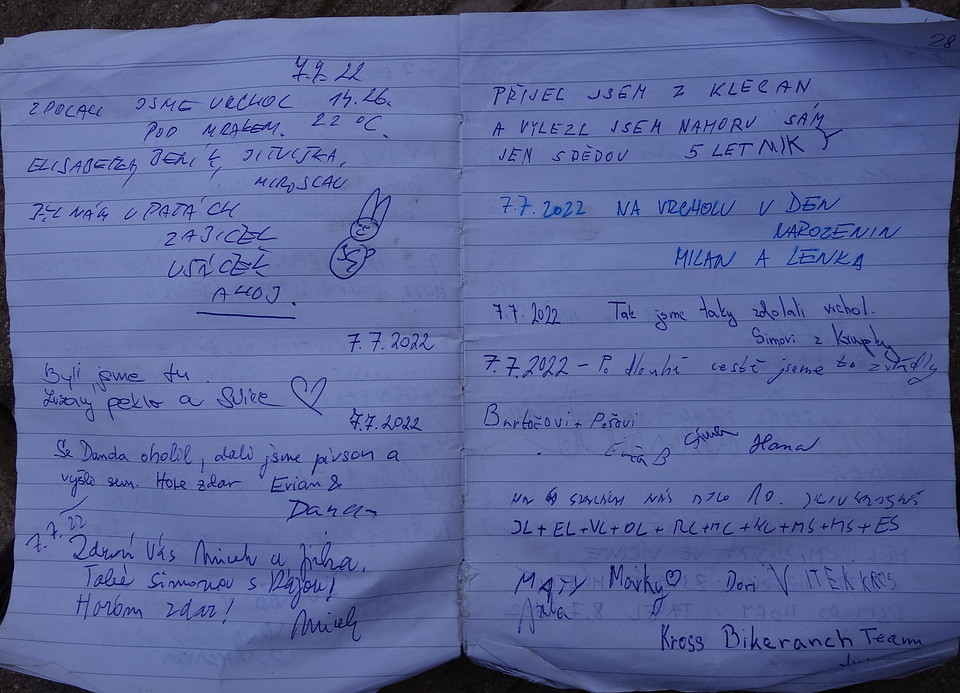 7.7.22
JSME VRCHOL 14.26.
POD MRAKEM. 22 °C.
MIROSLAV
BYL NÁM V PATÁCH
ZAJÍČEK
UŠÁČEK
AHOJ.
7.7.2022
Byli jsme tu
peklo a
7.7.2022
Se Danda oholil, dali jsme pivson a
vyšli sem. Hore zdar Evian &
Dandn
7.7.22
Zdraví Vás Mirek a Jirka.
Také Simonou s
Horám zdar!
Mirek
28
PŘIJEL JSEM Z KLECAN
A VYLEZL JSEM NAHORU SÁM
JEN S DĚDOU 5 LETNIK
7.7.2022 NA VRCHOLU V DEN
NAROZENIN
MILAN A LENKA
7.7.2022 Tak jsme taky zdolali vrchol.
Simovi z Krupky
7.7.2022 – Po dlouhé cestě jsme to zvládly
Bartočovi + Pošovi
Hana
NÁS BYLO 10.
JL + EL + VL + OL + RL + ML + KL + MS + MS + ES
MATY Marky♡ Dori VITEK KROS
Kross Bikeranch Team